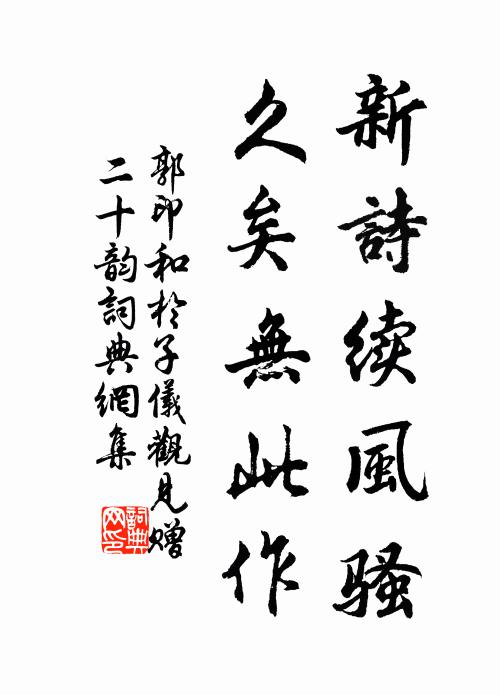 新詩续風骚
久矣無此作
郭印和於子儀觀見赠
二十韵詞典網集
詞典网印